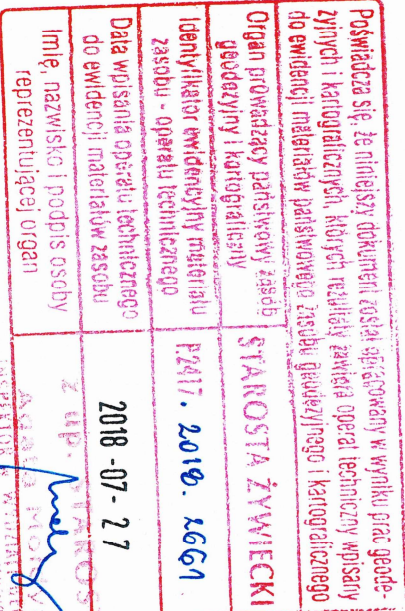 Poświadcza się, że niniejszy dokument został opracowany w wyniku prac geode-
zyjnych i kartograficznych, których rezultaty zawiera operat techniczny wpisany
do ewidencji materiałów państwowego zasobu geodezyjnego i kartograficznego
Organ prowadzący państwowy zasób
geodezyjny i kartograficzny
STAROSTA ŻYWIECKI
Identyfikator ewidencyjny materiału
zasobu - operatu technicznego
P.2417.2018.2661
Data wpisania operatu technicznego
do ewidencji materiałów zasobu
2018 -07- 27
Imię, nazwisko i podpis osoby
reprezentującej organ
z up. STAROS
INSPEKTOR